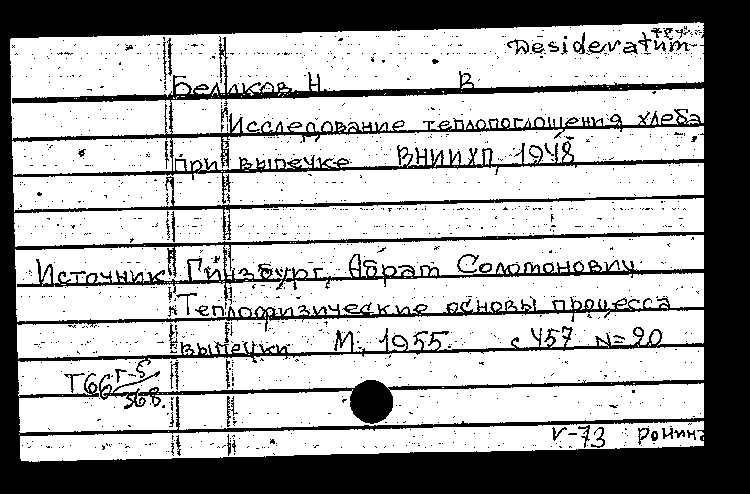 Desideratum
Беляков, Н. В
Исследование теплопоглощения хлеба
при выпечке ВНИИХП, 1948
Источник: Гинзбург, Абрам Соломонович
Теплофизические основы процесса
выпечки М., 1955. с 457 N=20
Т66 Г-5/368.
V-73